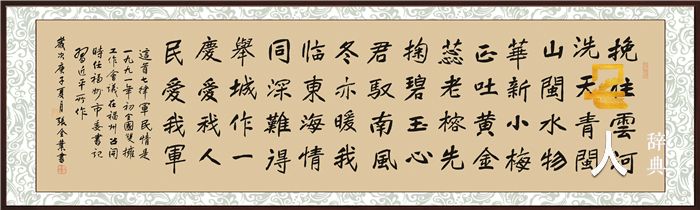 挽住雲河
洗天青閩
山閩水物
華新小梅
正吐黃金
蕊老榕先
掬碧玉心
君馭南風
冬亦暖我
臨東海情
同深難得
舉城作一
慶愛我人
民愛我軍
這首七律軍民情是
一九九一年初全國雙擁
工作會議在福州召開
時任福州市委書記
習近平所作
歲次庚子夏月張金業書
人
辭典